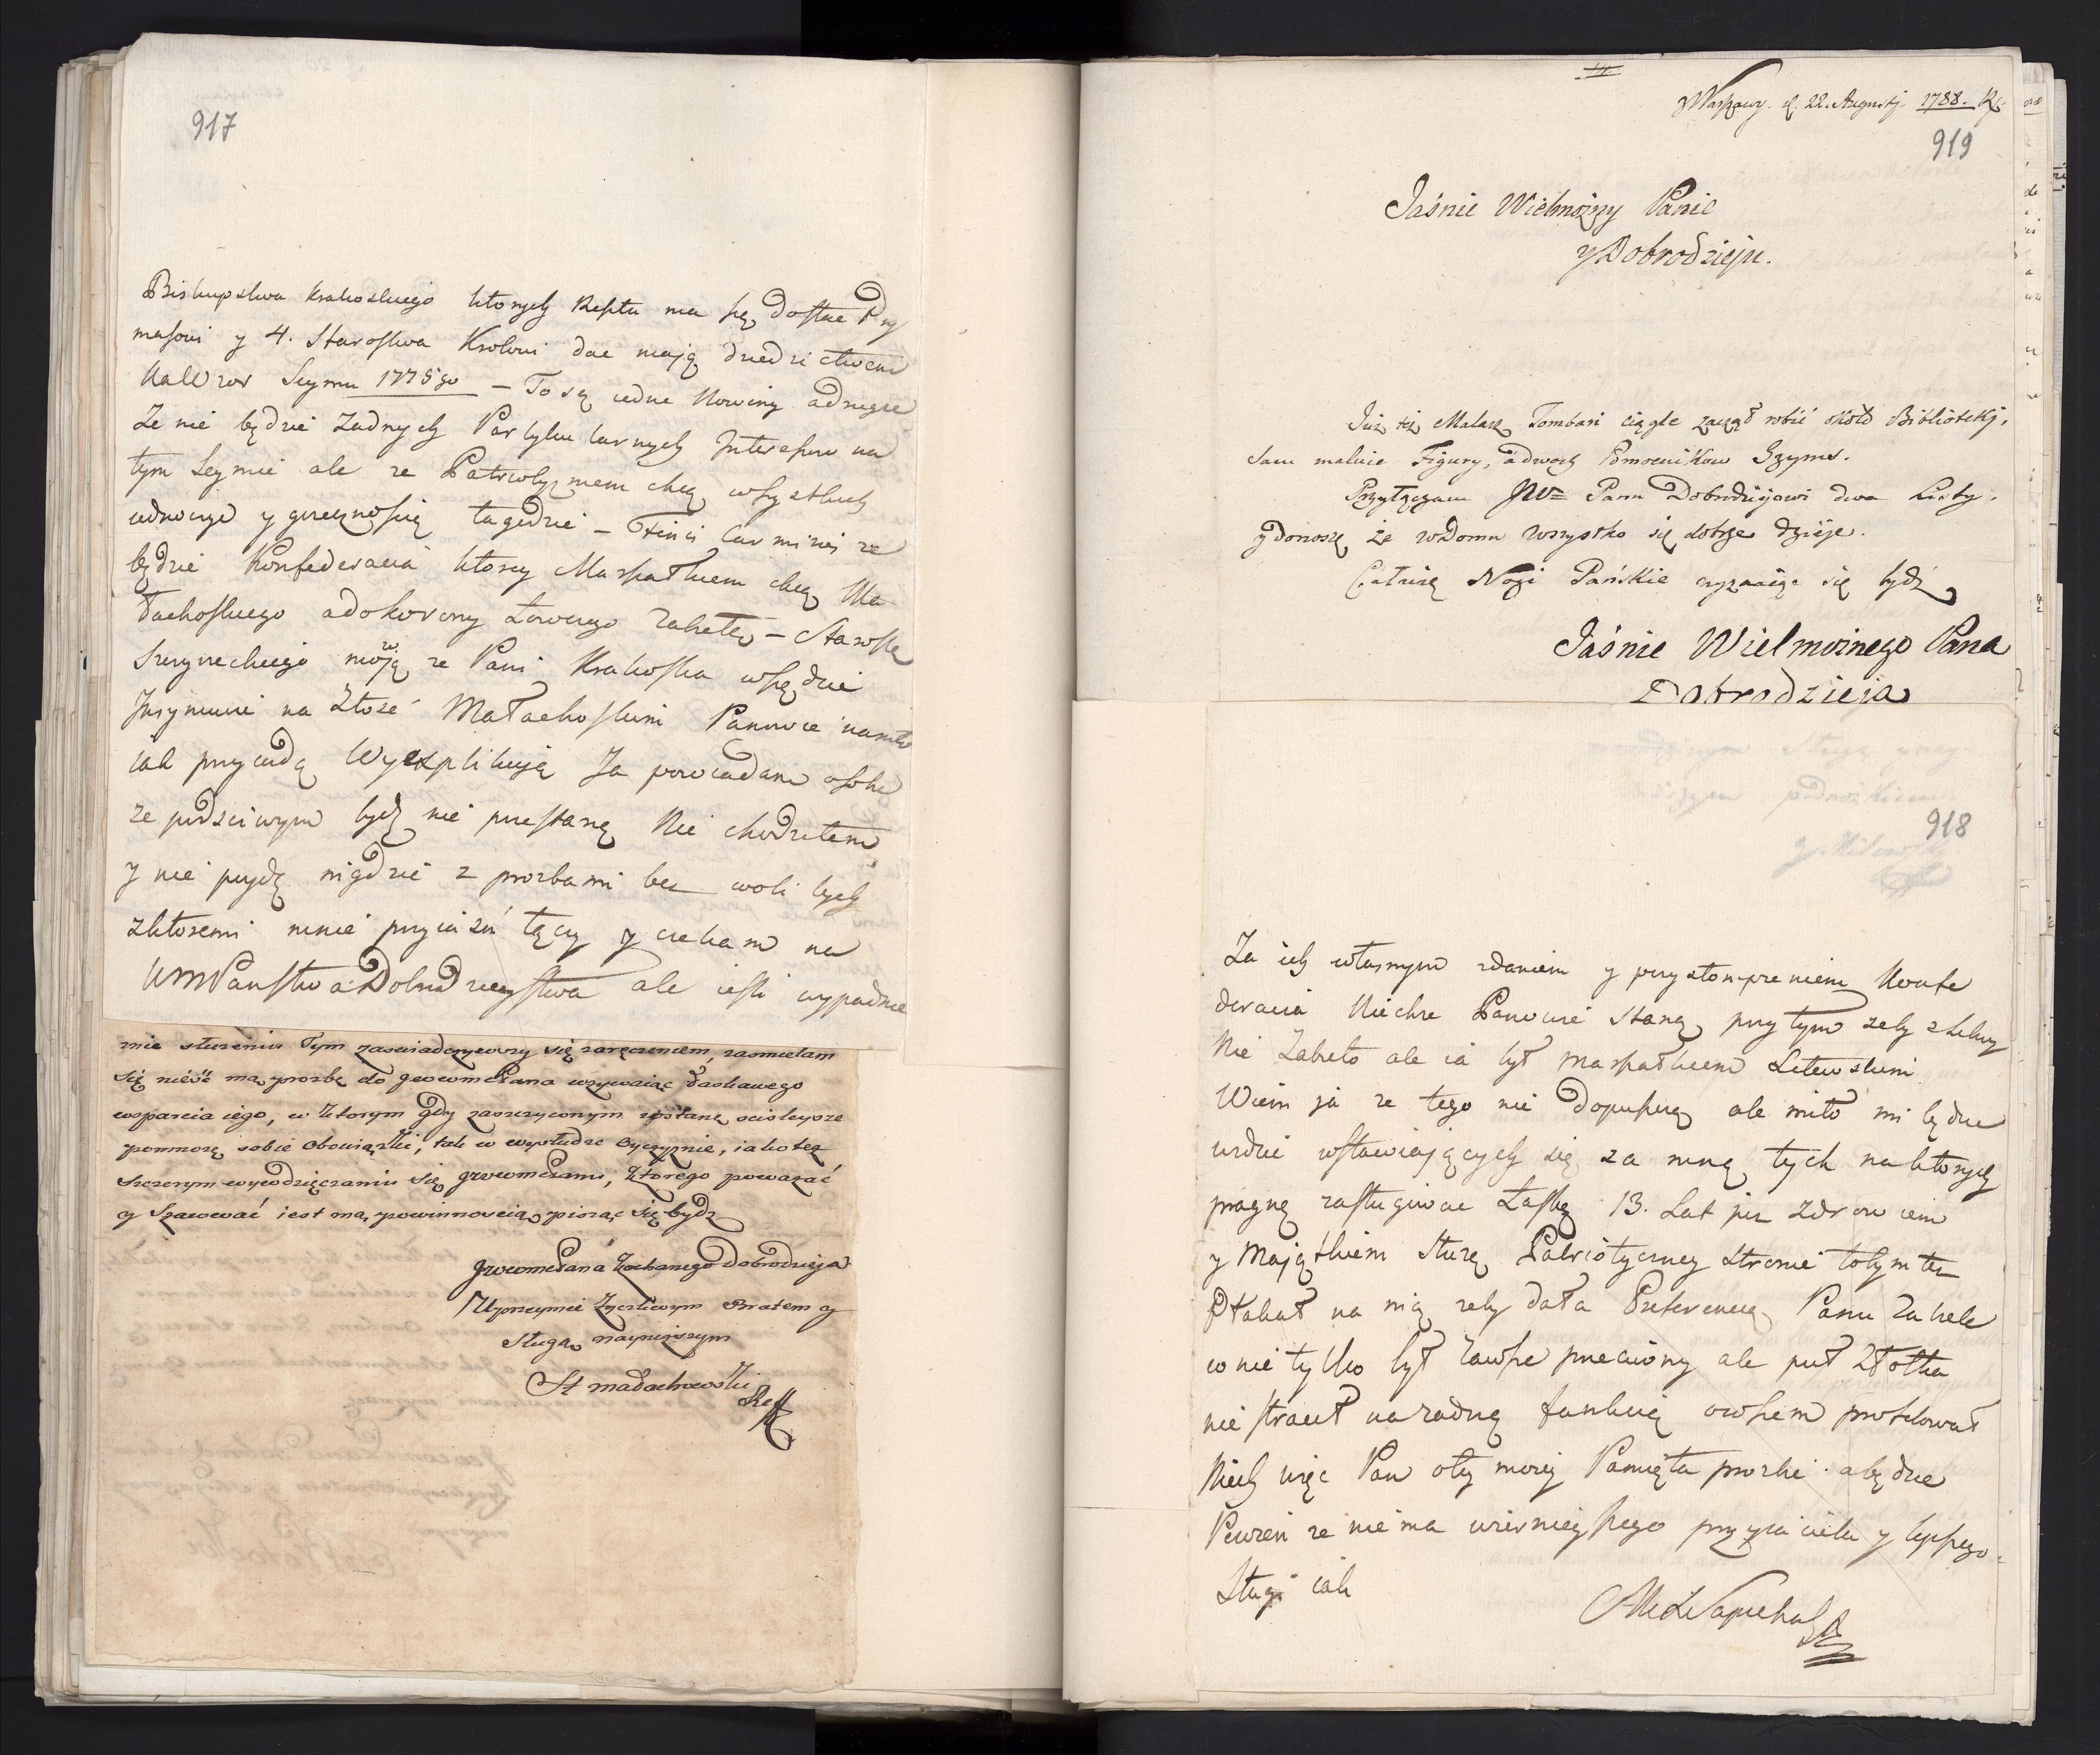 917
Biskupstwa Krakoskiego ktorych Reszta ma się dostac Pry
masowi y 4. Starostwa Krolowi dac mają dziedzictwem
Na Wzor Seymu 1775go – To są iedne Nowiny adrugie
Ze nie będzie Zadnych Partykularnych Interesow na
tym Seymie ale ze Patryotyzmem chcą wszystkich
uiednoczyc y grzecznoscią łagodzic –
będzie Konfederacia ktorey Marszałkiem chcą Ma
łachoskiego adokorony Łowczego Zabiełę –
mowią ze Pani Krakoska wszędzie
Insynuuie na Złosc Małachoskim Panowie
iak przyiadą Wyexplikują Ja powiadam osobie
ze podsciwym bydz nie przestanę Nie chodziłem
y nie pujdę nigdzie z prozbami bez woli tych
zktoremi mnie przyiazń łączy y czekam na
WMPanstwa Dobrodzieystwa ale iesli wypadnie
mie służeniu Tym zaswiadczywszy się zaręczeniem, zasmielam
się nieść mą prozbę do JWWMPana wzywaiąc łaskawego
wsparcia iego, w ktorym gdy zaszczyconym zostanę, scisleysze
pomnożę sobie obowiązki, tak w wysłudze Oyczyznie, iako też
szczerym wywdzięczaniu się JWWMPanu, ktorego poważać
y szacować iest mą powinnoscią, pisząc się bydz
JWWMPana Kochanego Dobrodzieja
Uprzeymie życzliwym Bratem y
Sługą nayniższym
St Małachowski
z Warszawy. d. 22. Augusti. 1788. R
919
Jaśnie Wielmożny Panie
y Dobrodzieju.
Już też Malarz Tombari ciągle zaczął robić około Biblioteki,
sam maluie Figury, adwoch Pomocnikow Gzyms.
Przyłączam JW= Panu Dobrodziejowi dwa Listy.
y donoszę że w Domu wszystko się dobrze dzieje.
Całuię Nogi Pańskie wyznaiąc się bydź
Jaśnie Wielmożnego Pana
Dobrodzieja
918
Za ich własnym zdaniem y przystompieniem Konfe
deracia Niechze Panowie staną przy tym zeby z Litwy
Nie Zabieło ale ia był Marszałkiem Litewskim
Wiem ja ze tego nie dopuszczą ale miło mi będzie
widziec wstawiających się za mną tych naktorych
pragnę zasługiwac Łaskę 13. Lat już Zdrowiem
y Majątkiem służę Patriotyczney stronie
Płakał na nią zeby dała Preferencią Panu Zabiele
co nie tylko był zawsze przeciwny ale puł Złotka
nie stracił na zadną funkcią owszem profitował
Niech więc Pan o tey moiey Pamięta prozbie a będzie
Pewien ze niema wiernieyszego przyiaciela y lepszego
Sługi iak